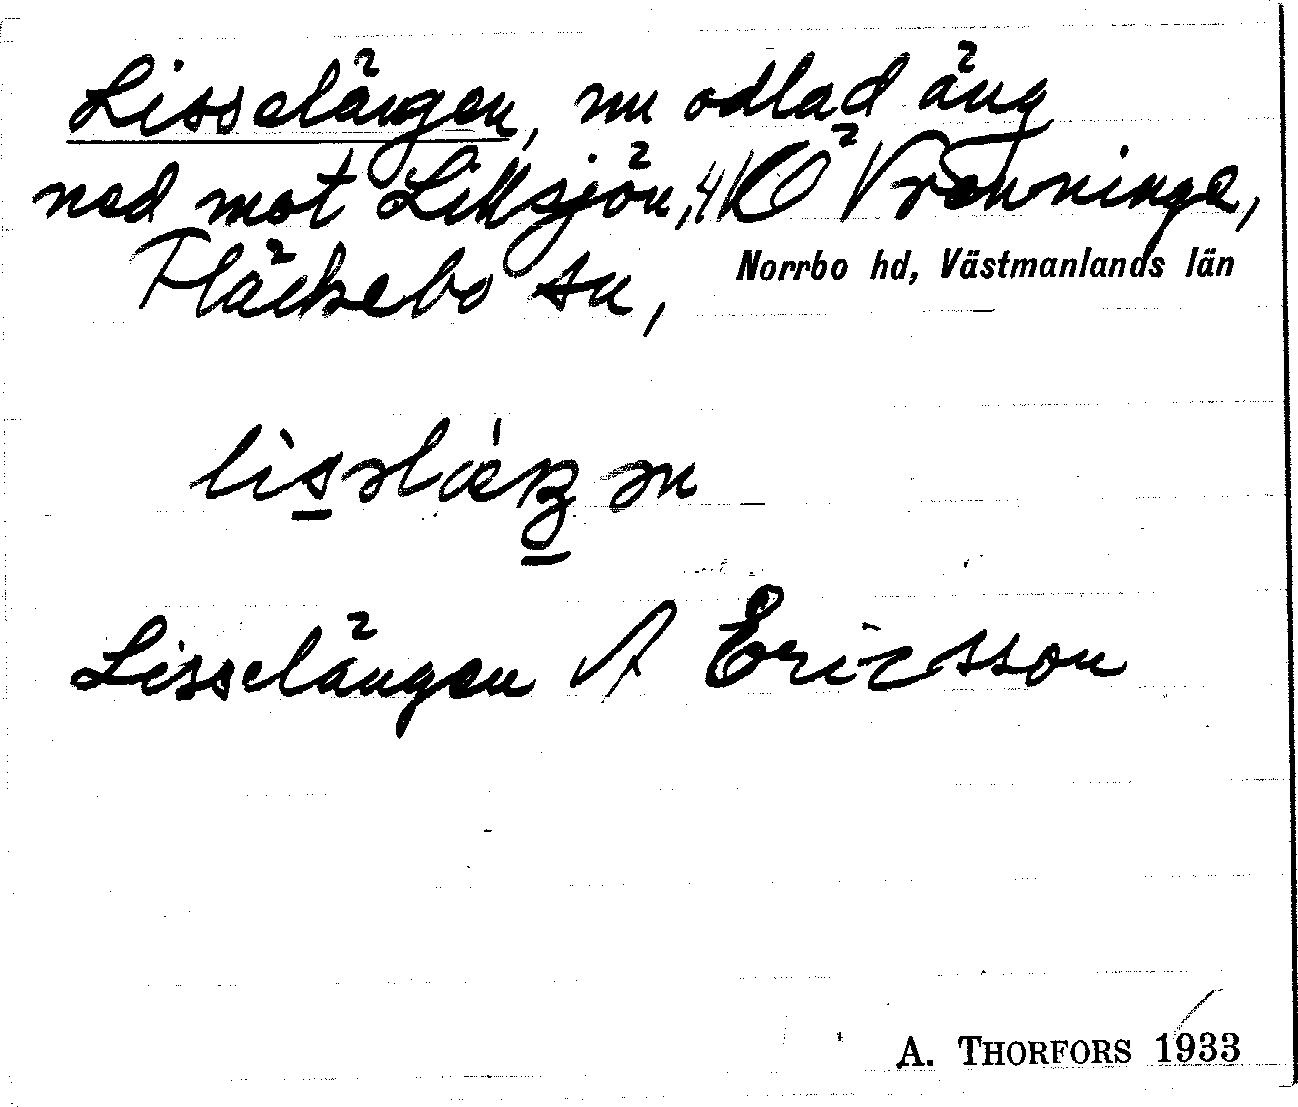 Lisselängen, nu odlad äng
ned mot Lillsjön, Ö Vrenninge,
Fläckebo sn, Norrbo hd, Västmanlands län
Lisselängen A Ericsson
A. THORFORS 1933